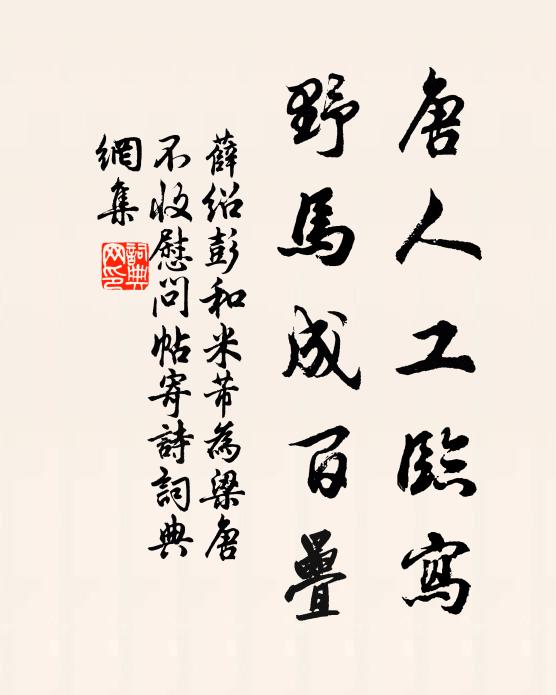 唐人工臨寫
野馬成百疊
薛紹彭和米芾為梁唐
不收慰問帖寄詩詞典
網集
詞典
网印